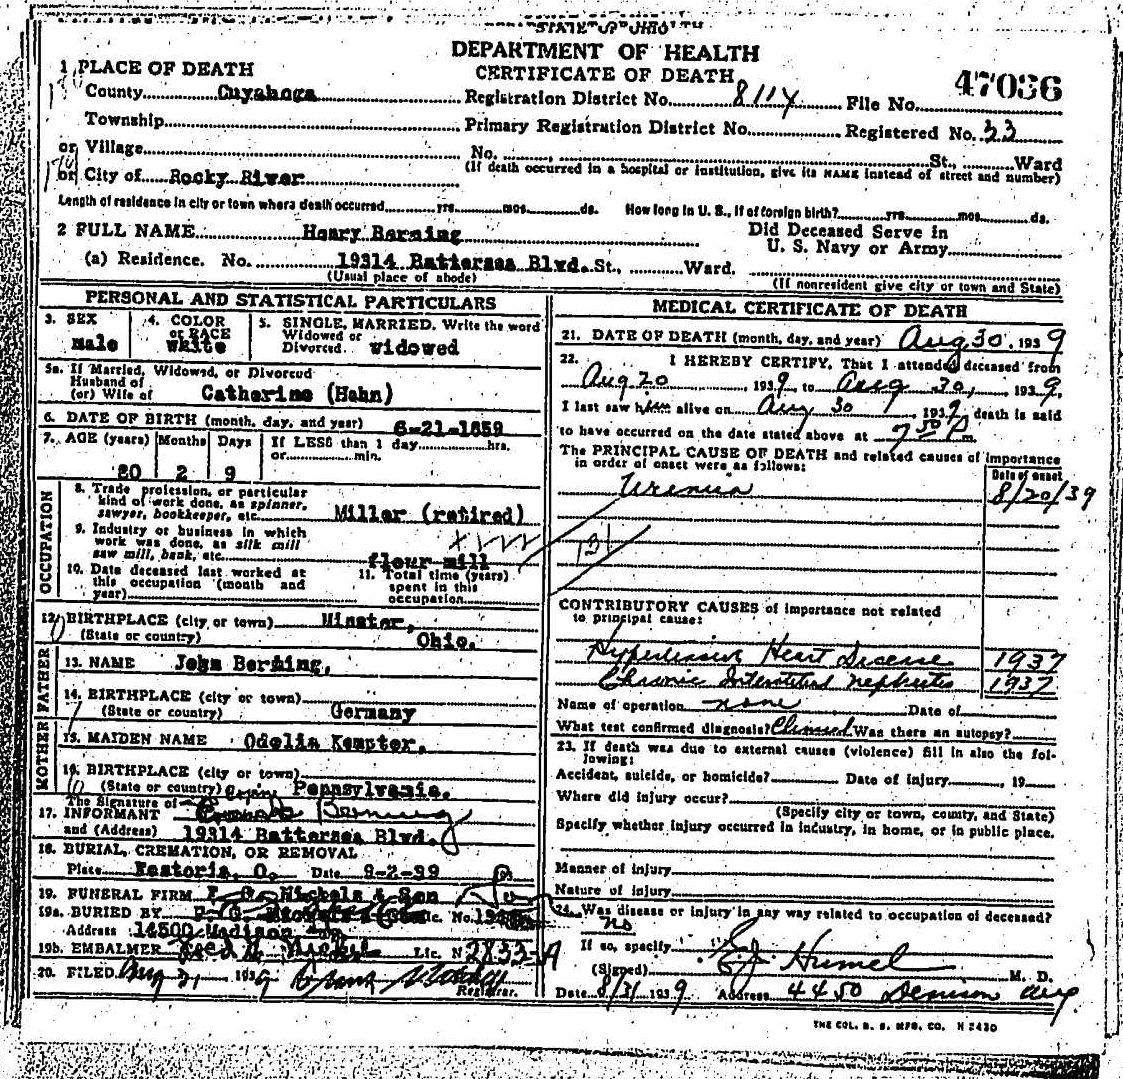 STATE OF OHIO
DEPARTMENT OF HEALTH
CERTIFICATE OF DEATH
47036
1 PLACE OF DEATH
County Cuyahoga Registration District No. 8114 File No.
Township Primary Registration District No. Registered No. 33
or Village No. , St., Ward
(If death occurred in a hospital or institution, give its NAME instead of street and number)
or City of Rocky River
Length of residence in city or town where death occurred yrs. mos. ds. How long in U. S., if of foreign birth? yrs. mos. ds.
2 FULL NAME Henry Berning Did Deceased Serve in U. S. Navy or Army
(a) Residence. No. 19314 Battersea Blvd. St., Ward.
(Usual place of abode) (If nonresident give city or town and State)
PERSONAL AND STATISTICAL PARTICULARS
3. SEX male
4. COLOR or RACE white
5. SINGLE, MARRIED. Write the word Widowed or Divorced. widowed
5a. If Married, Widowed, or Divorced
Husband of
(or) Wife of Catherine (Hahn)
6. DATE OF BIRTH (month, day, and year) 6-21-1859
7. AGE (years) Months Days If LESS than 1 day hrs.
or min.
80 2 9
OCCUPATION
8. Trade profession, or particular
kind of work done, as spinner,
sawyer, bookkeeper, etc. Miller (retired)
9. Industry or business in which
work was done, as silk mill
saw mill, bank, etc. flour mill
10. Date deceased last worked at
this occupation (month and
year)
11. Total time (years)
spent in this
occupation
12. BIRTHPLACE (city or town) Minster,
(State or country) Ohio.
FATHER
13. NAME John Berning.
14. BIRTHPLACE (city or town)
(State or country) Germany
MOTHER
15. MAIDEN NAME Odelia Kempter.
16. BIRTHPLACE (city or town)
(State or country) Pennsylvania.
The Signature of
17. INFORMANT Berning
and (Address) 19314 Battersea Blvd.
18. BURIAL, CREMATION, OR REMOVAL
Place Date 9-2-39
19. FUNERAL FIRM Nickels & Son
19a. BURIED BY Lic. No.
Address 14500 Madison
19b. EMBALMER Lic. N 2833-A
20. FILED Aug 31 1939
Registrar.
MEDICAL CERTIFICATE OF DEATH
21. DATE OF DEATH (month, day, and year) Aug 30, 1939
22. I HEREBY CERTIFY, That I attended deceased from
Aug 20, 1939, to Aug 30, 1939.
I last saw him alive on Aug 30, 1939, death is said
to have occurred on the date stated above at 7 30 P m.
The PRINCIPAL CAUSE OF DEATH and related causes of importance
in order of onset were as follows:
Date of onset
Uremia 8/20/39
131
CONTRIBUTORY CAUSES of importance not related
to principal cause:
Hypertensive Heart Disease 1937
Chronic Interstitial nephritis 1937
Name of operation none Date of
What test confirmed diagnosis? Clinical Was there an autopsy?
23. If death was due to external causes (violence) fill in also the following:
Accident, suicide, or homicide? Date of injury , 19
Where did injury occur?
(Specify city or town, county, and State)
Specify whether injury occurred in industry, in home, or in public place.
Manner of injury
Nature of injury
24. Was disease or injury in any way related to occupation of deceased?
no
If so, specify
(Signed) E J Humel M. D.
Date 8/31 1939 Address 4450 Denison Ave.
THE COL. B. B. MFG. CO.